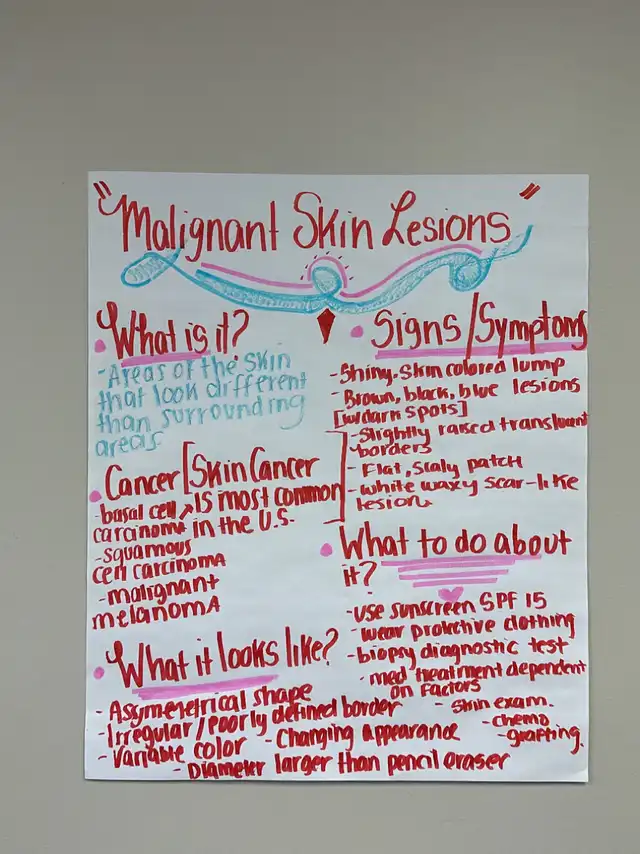 "Malignant Skin Lesions"
What is it?
-Areas of the skin
that look different
than surrounding
areas
Cancer [Skin Cancer
is most common
in the U.S.
-basal cell
carcinoma
-squamous
cell carcinoma
-malignant
melanomA
Signs/Symptoms
-Shiny. Skin colored lump
-Brown, black, blue lesions
[w/dark spots]
-Slightly raised translucent
borders
-Flat, scaly patch
-white waxy scar-like
lesion
What to do about
it?
-use sunscreen SPF 15
-wear protective clothing
-biopsy diagnostic test
-med treatment dependent
on factors
-skin exam.
-chemo
-grafting.
What it looks like?
-Asymmetrical shape
-Irregular/Poorly defined border
-Variable color -Changing appearance
-Diameter larger than pencil eraser